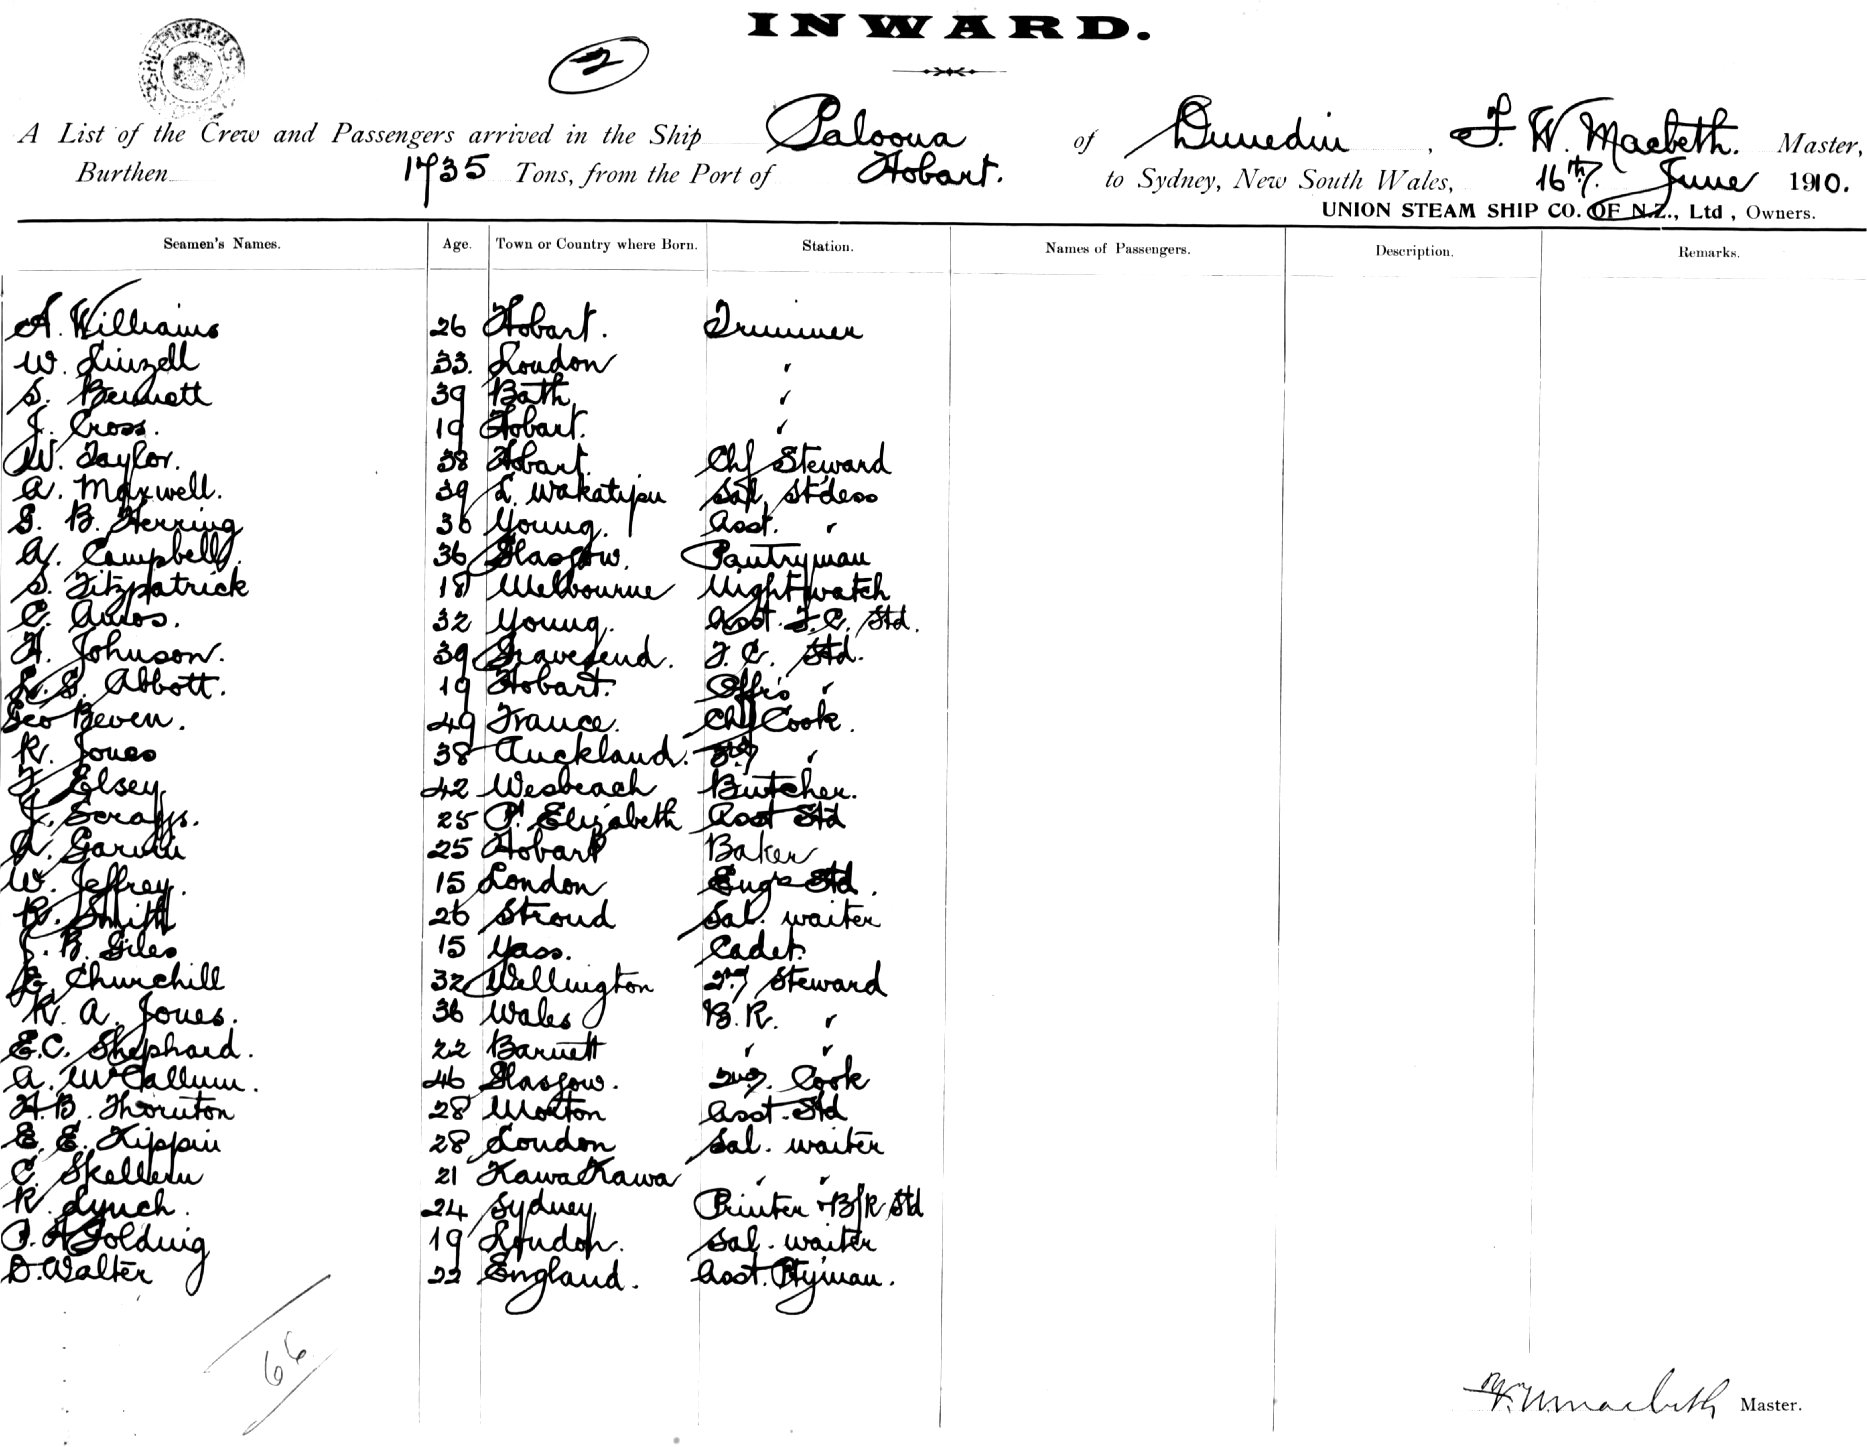 INWARD.
2
A List of the Crew and Passengers arrived in the Ship Paloona of Dunedin, F. W. Macbeth. Master,
Burthen 1735 Tons, from the Port of Hobart. to Sydney, New South Wales, 16th June 1910.
UNION STEAM SHIP CO. OF N.Z., Ltd, Owners.
Seamen's Names. Age. Town or Country where Born. Station. Names of Passengers. Description. Remarks.
A. Williams 26 Hobart. Trimmer
W. Linzell 33. London "
S. Bennett 39 Bath "
J. Cross. 19 Hobart. "
W. Taylor. 38 Hobart. Chf Steward
A. Maxwell. 39 L. Wakatipu Sal. St'dess
G. B. Herring 36 Young. Asst. "
A. Campbell. 36 Glasgow. Pantryman
S. Fitzpatrick 18 Melbourne Nightwatch
C. Amos. 32 Young. Asst. F.C. Std.
H. Johnson. 39 Gravesend. F.C. Std.
L. S. Abbott. 19 Hobart. Offrs "
Geo Beven. 49 France. Chf Cook.
R. Jones 38 Auckland. 3rd "
F. Elsey 42 Wesbeach Butcher.
J. Scraggs. 25 Pt. Elizabeth Asst Std
A. Garvin 25 Hobart Baker
W. Jeffrey. 15 London Engrs Std.
R. Smith 26 Stroud Sal. waiter
J. B. Giles 15 Yass. Cadet.
E. Churchill 32 Wellington 2nd Steward
R. A. Jones. 36 Wales B.R. "
E.C. Shephard. 22 Barnett " "
A. McCallum. 46 Glasgow. 2nd. Cook
H.B. Thornton 28 Morton Asst. Std
E. E. Kippin 28 London Sal. waiter
C. Skellern 21 KawaKawa " "
R. Lynch. 24 Sydney Printer & B/R Std
P. A. Golding 19 London. Sal. waiter
D. Walter 22 England. Asst. Ptyman.
66
F. W. Macbeth Master.